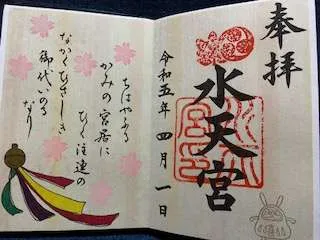 奉拝
水天宮
令和五年四月一日
ちはやふる
かみの宮居に
ひく注連の
ながくひさしき
御代いのる
なり